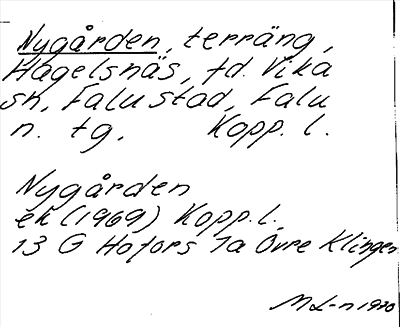 Nygården, terräng,
Hagelsnäs, fd. Vika
sn, Falu stad, Falu
n. tg. Kopp. l.
Nygården
ek (1969) Kopp. l.
13 G Hofors 1a Övre Klingen
ML-n 1970